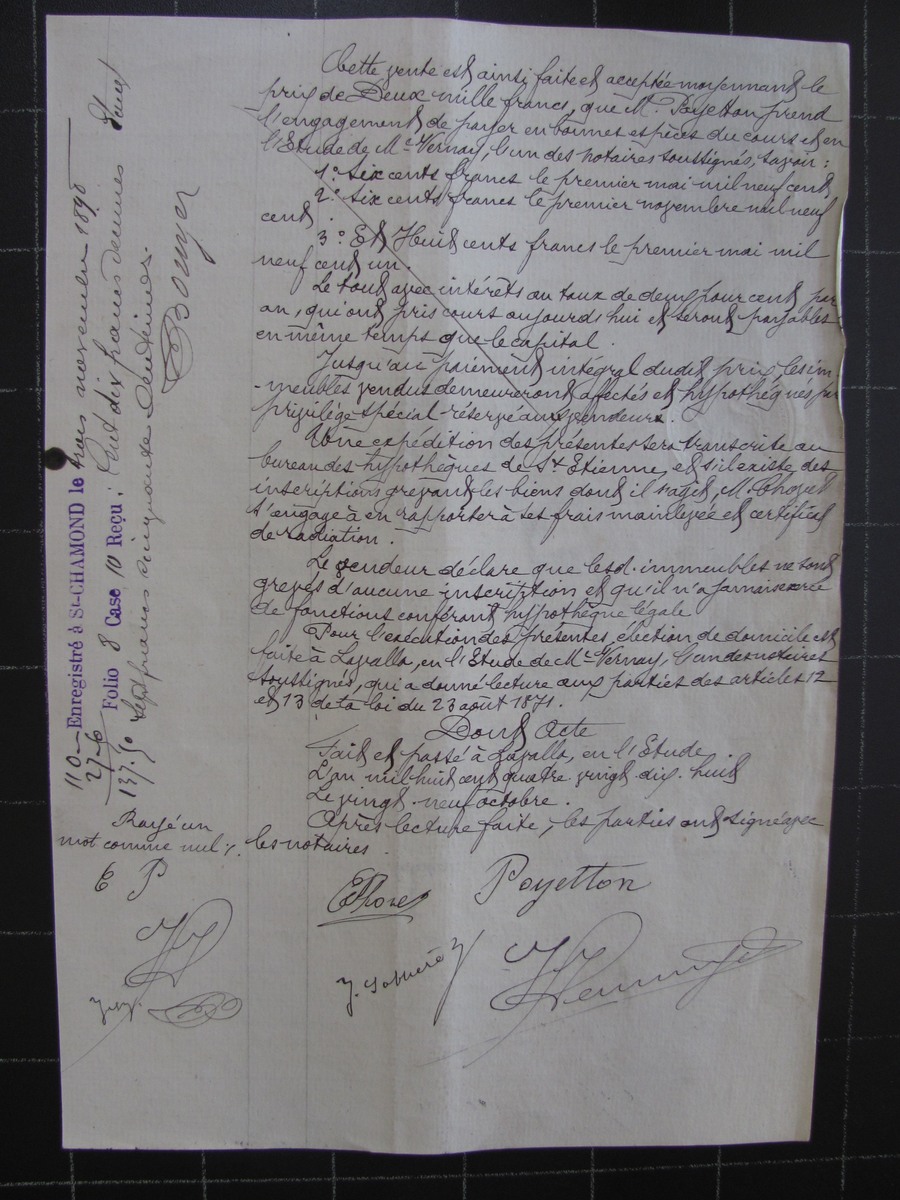 Cette vente est ainsi faite et acceptée moyennant le
prix de Deux mille francs, que M. Poyetton prend
l'engagement de payer en bonnes espèces du cours et en
l'Etude de Me Vernay, l'un des notaires soussignés, savoir :
1° Six cents francs le premier mai mil neuf cent,
2° Six cents francs le premier novembre mil neuf
cent.
3° Et Huit cents francs le premier mai mil
neuf cent un.
Le tout avec intérêts au taux de deux pour cent par
an, qui ont pris cours aujourd'hui et seront payables
en même temps que le capital.
Jusqu'au paiement intégral dudit prix, les im
-meubles vendus demeureront affectés et hypothéqués par
privilège spécial réservé aux vendeurs.
Une expédition des présentes sera transcrite au
bureau des hypothèques de St Etienne, et s'il existe des
inscriptions grevant les biens dont il s'agit, M.
s'engage à en rapporter à ses frais mainlevée et certificat
de radiation.
Le vendeur déclare que lesd. immeubles ne sont
grevés d'aucune inscription et qu'il n'a jamais exercé
de fonctions conférant hypothèque légale
Pour l'exécution des présentes, élection de domicile est
faite à Lavalla, en l'Etude de Me Vernay, l'un des notaires
soussignés, qui a donné lecture aux parties des articles 12
et 13 de la loi du 23 août 1871.
Dont Acte
Fait et passé à Lavalla, en l'Etude.
L'an mil huit cent quatre vingt dix-huit
Le vingt-neuf octobre.
Après lecture faite, les parties ont signé avec
les notaires.
Rayé un
mot comme nul
Poyetton
Enregistré à St-CHAMOND le trois novembre 1898
Folio 8 Case 10 Reçu : Cent dix francs, décimes
sept francs cinquante centimes.
110
27-6
137.50